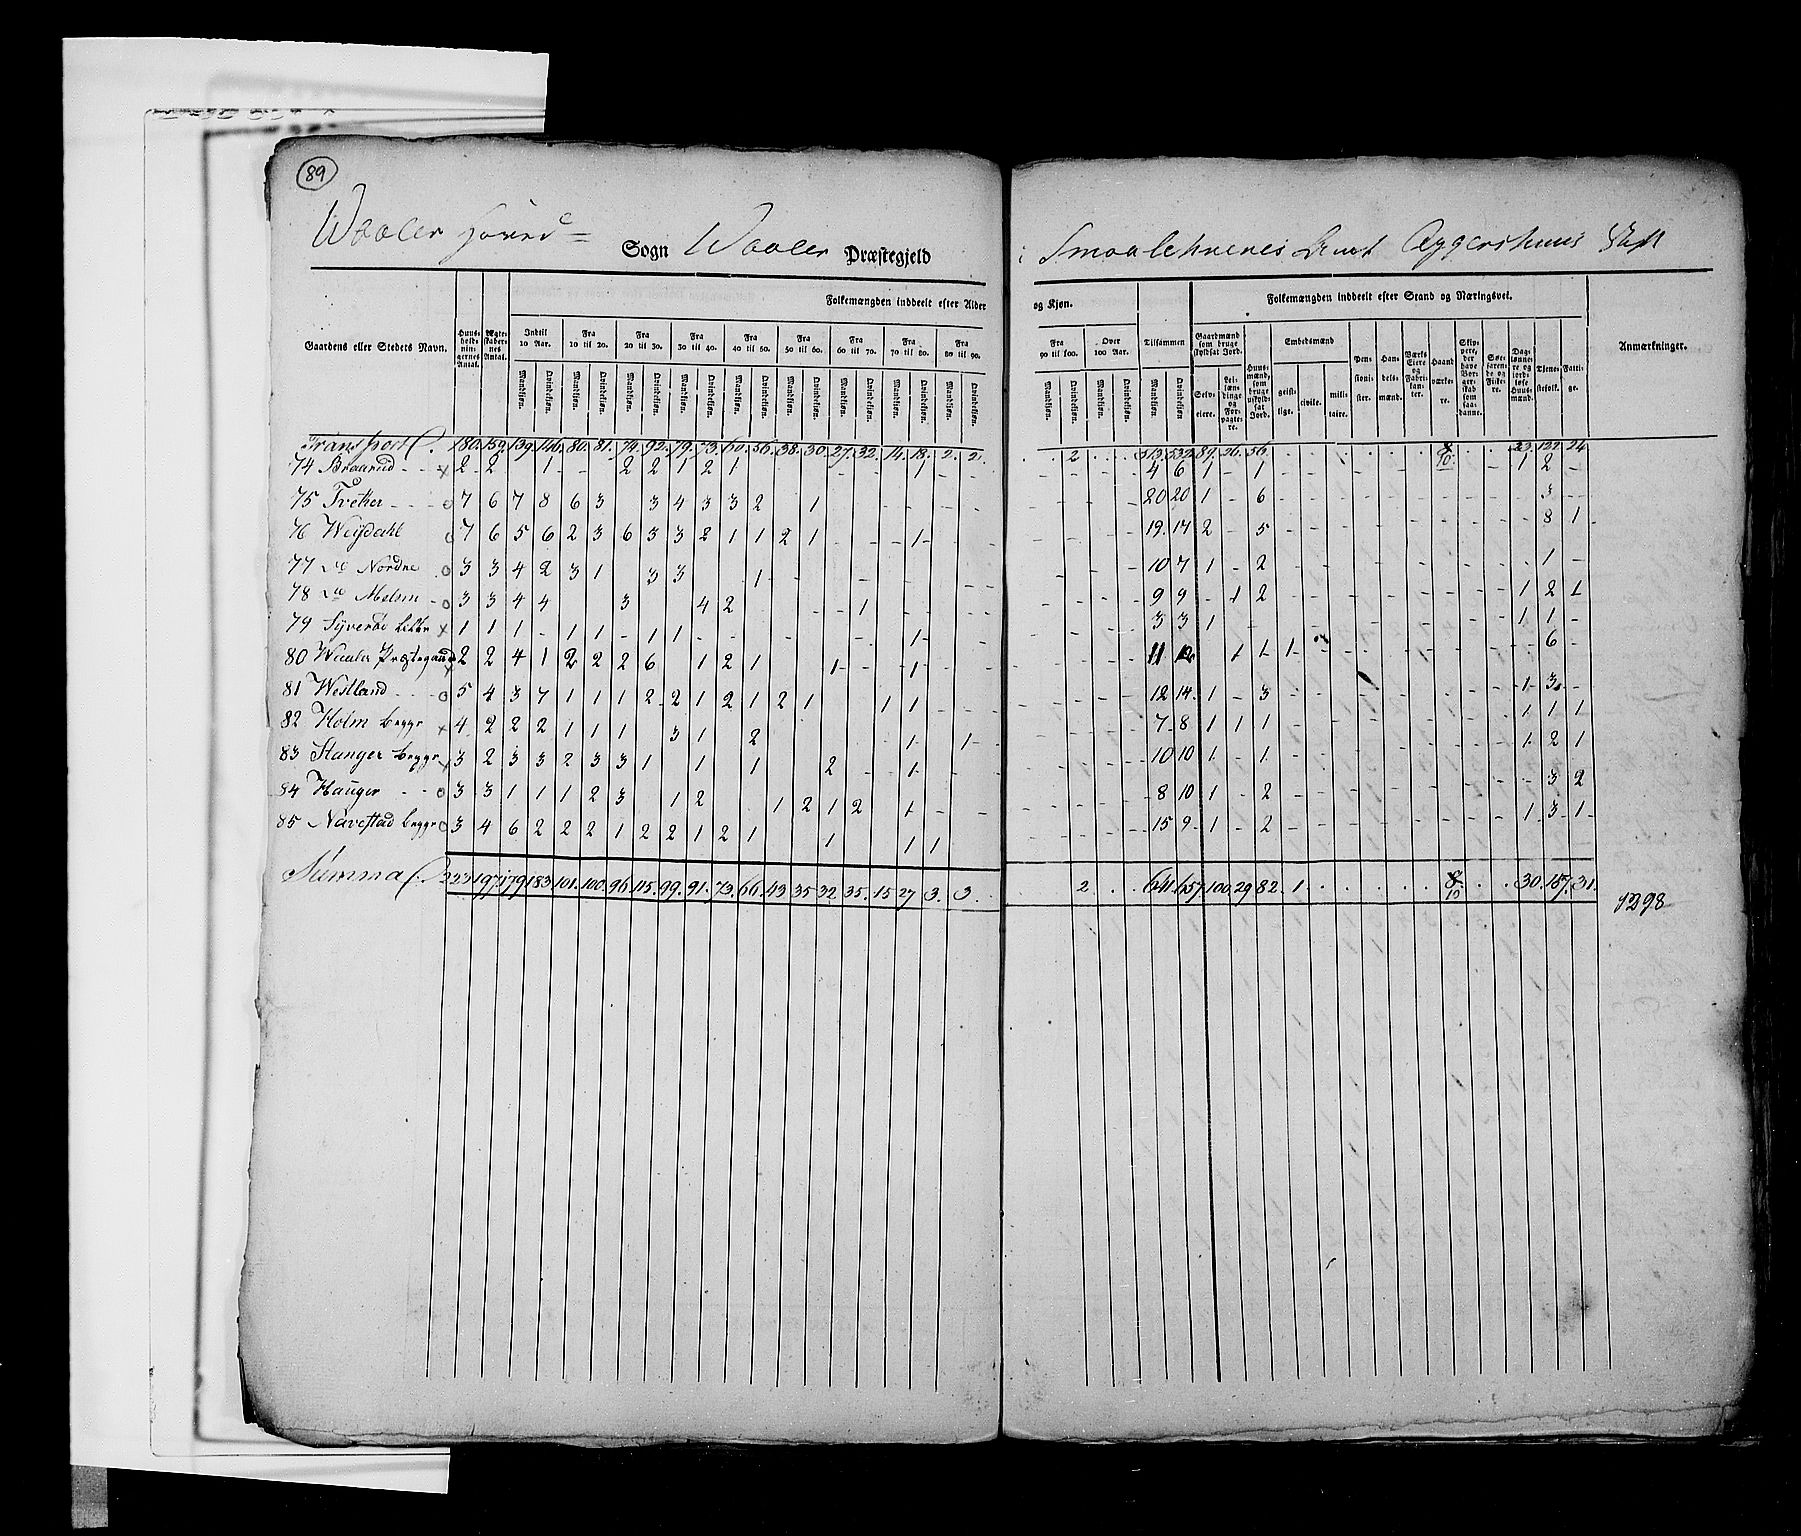 89
Waaler Hoved= Sogn Waaler Præstegjeld i Smaalehnenes Amt Aggershuus Stift
Gaardens eller Steders Navn.
Huus-holdnin-gernes Antal.
Ægte-skaber-nes Antal.
Folkemængden inddeelt efter Alder og Kjøn.
Indtil 10 Aar.
Fra 10 til 20.
Fra 20 til 30.
Fra 30 til 40.
Fra 40 til 50.
Fra 50 til 60.
Fra 60 til 70.
Fra 70 til 80.
Fra 80 til 90.
Fra 90 til 100.
Over 100 Aar.
Tilsammen
Mandkjøn. Qvindekjøn.
Folkemængden inddeelt efter Stand og Næringsvei.
Gaardmænd som bruge skyldsat Jord.
Selv-eiere.
Lei-læn-dinge og For-pagte-re.
Huus-mænd, som bruge uskyld-sat Jord.
Embedsmænd
geist-lige.
civile.
mili-taire.
Pen-sioni-ster.
Han-dels-mænd.
Værks Eiere og Fabri-kan-ter.
Haand-værke-re.
Skip-pere, der have Bor-ger-skab som saa-danne.
Søe-faren-de og Fiske-re.
Dag-lønne-re og jord-løse Huus-mænd.
Tjene-stefolk.
Fatti-ge.
Anmærkninger.
Transport 180. 159. 139. 146. 80. 81. 74. 92. 79. 73. 60. 56. 38. 30. 27. 32. 14. 18. 2. 2. . 2 . . 513. 532. 89. 26. 56. 8/10 23. 132. 24
74 Braarud x 2 2 1 2 2 1 2 1 1 4 6 1 1 1 2
75 Tveter o 7 6 7 8 6 3 3 4 3 3 2 1 20 20 1 6 3
76 Weijdahl o 7 6 5 6 2 3 6 3 3 2 1 1 2 1 1 19 17 2 5 8 1
77 Nordre o 3 3 4 2 3 1 3 3 1 10 7 1 2 1
78 Melem o 3 3 4 4 3 4 2 1 9 9 1 2 1 2 1
79 Syverød x 1 1 1 1 1 1 1 1 3 3 1 1 1
80 Waaler Præstegaard 2 2 4 1 2 2 2 6 1 2 1 1 1 11 1 1 1 6
81 Westland o 5 4 3 7 1 1 1 2 2 1 2 1 2 1 1 1 12 14 1 3 1 3
82 Holm begge x 4 2 2 2 1 1 1 3 1 2 1 1 7 8 1 1 1 1 1 1
83 Stanger begge x 3 2 3 3 2 3 3 1 1 1 2 1 10 10 1 1 1 2 1
84 Hauger o 3 3 1 1 1 2 3 1 2 1 2 1 2 1 8 10 1 2 3 2
85 Navestad begge o 3 4 6 2 2 2 1 2 2 1 2 1 1 1 1 15 9 1 2 1 3 1
Summa 223 197 179 183 101. 100. 96. 115. 99. 91. 73. 66. 43 35 32 35. 15 27 3. 3. 2 . . 641. 657. 100. 29 82. 1 8/10 30. 167. 31.
1298